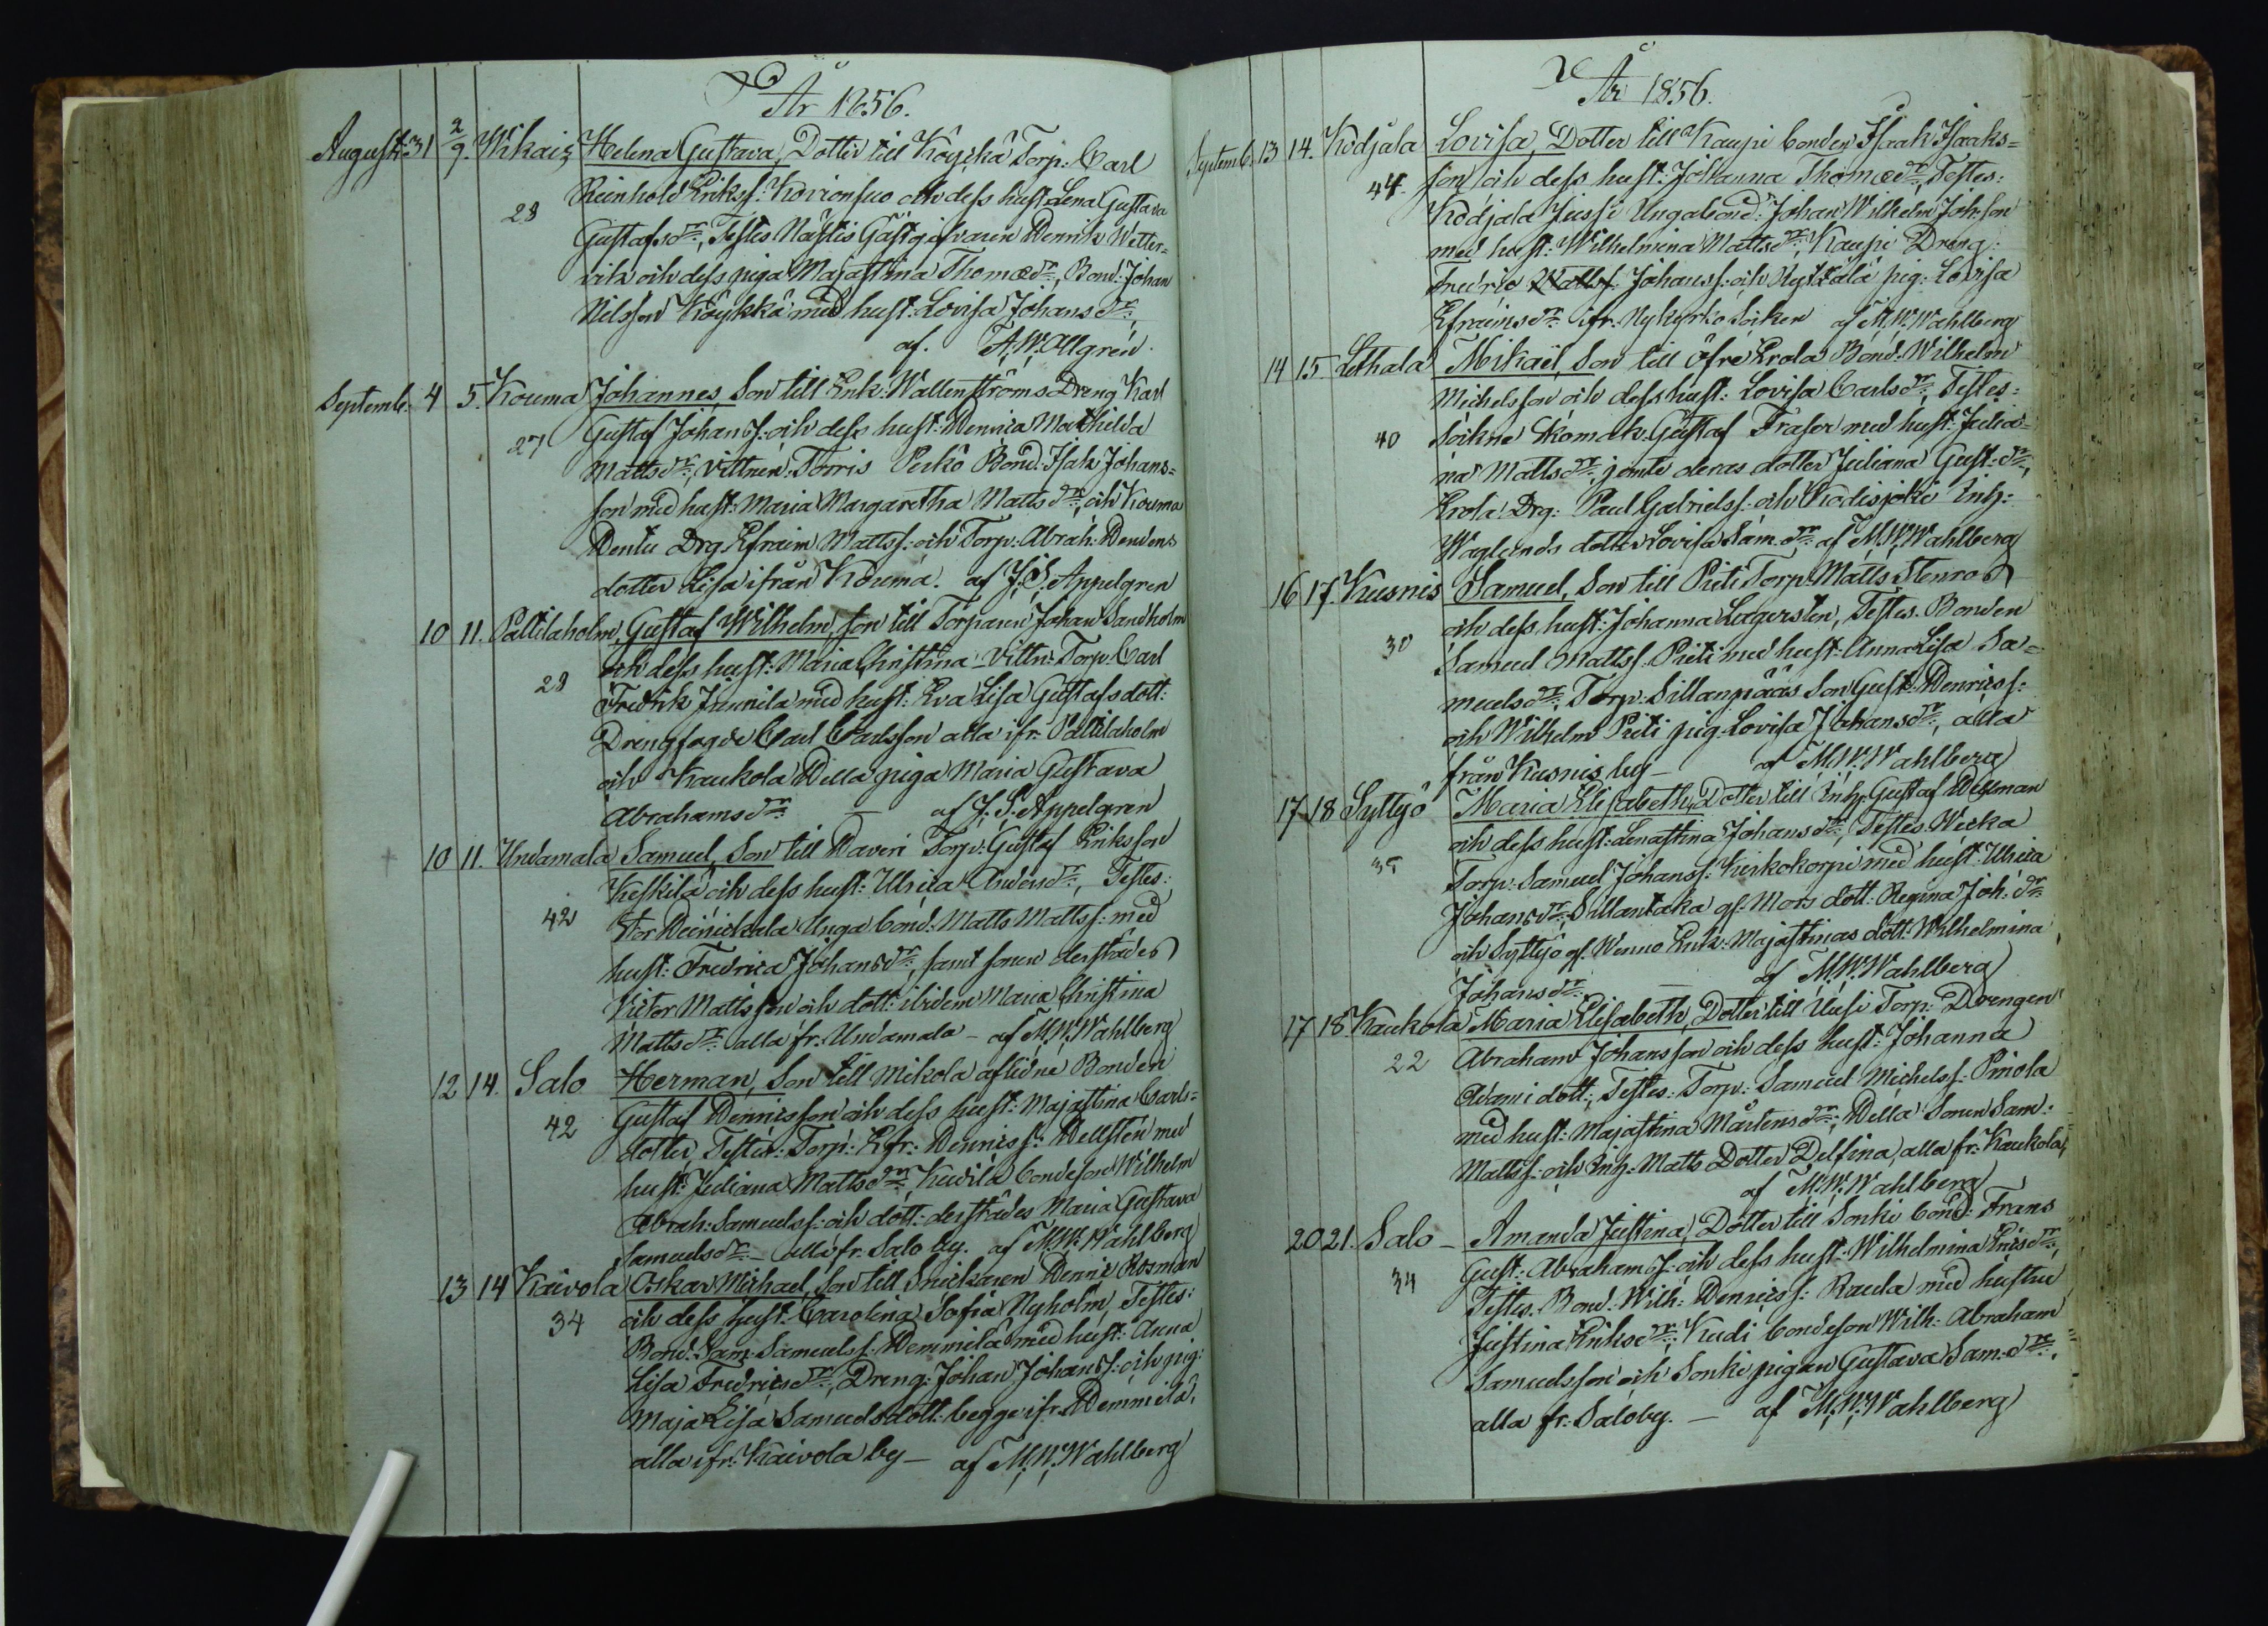 År 1856.
August 31 2/9. Wikais Helena Gustava, Dotter till Köyckä Torp: Carl
Reinhold Erikss: Kovionsuo och dess hust Lena Gustava
23 Gustafsdr:, Testes Nästis Gästgifvaren Henrik Wetter=
vik och dess piga Majastina Thomædr:, Bond: Johan
Nilsson Köykkä med hust: Lovisa Johansdr:,
af. A. W. Allgrén.
Septemb. 4 5. Kouma Johannes, Son till Enk: Wallenströms Dreng Karl
27 Gustaf Johanss: och dess hust: Henrica Mathilda
Mattsdr:, Vittnen: Torris Perkö Bond: Isak Johans=
son med hust: Maria Margaretha Mattsdr:, och Kouma
Hentu Drg Efraim Mattss: och Torp: Abrah: Hendens
dotter Lisa ifrån Kouma. af J. S. Appelgren
10 11. Paltilaholm, Gustaf Wilhelm, son till Torparen Johan Sandholm
och dess hust: Maria Christina Vittn: Torp: Carl
28 Fredrik Junnila med hust: Eva Lisa Gustafsdott:
Drengfogde Carl Carlsson alla ifr: Paltilaholm
och Kaukola Hella piga Maria Gustava
Abrahamsdr: — af J. S. Appelgren
10 11. Undamala Samuel, Son till Haveri Torp: Gustaf Eriksson
Keskilä och dess hust: Ulrica Andersdr:, Testes:
42 Stor Heinickala Unga bond: Matts Mattss: med
hust: Fredrica Johansdr:, samt sonen derstädes
Victor Mattsson och dott: ibidem Maria Christina
Mattsdr: alla fr: Undamala - af M. W. Wahlberg
12 14. Salo Herman, Son till Mikola aflidne Bonden
42 Gustaf Henricsson och dess hust: Majastina Carls=
dotter, Testes: Torp: Efr: Henricss: Hellsten med
hust: Juliana Mattsdr: Kudila bondeson Wilhelm
Abrah: Samuelss: och dott: derstädes Maria Gustava
Samuelsdr: — alla fr: Salo by. af M. W. Wahlberg
13 14 Kaivola Oskar Michael, Son till Snickaren Henric Rosman
34 och dess hust: Carolina Sofia Nyholm, Testes:
Bond: Sam: Samuelss: Hemmilä med hust: Anna
Lisa Fredricsdr:, Dreng: Johan Johanss: och pig:
Maja Lisa Samuelsdott: begge ifr: Hemmilä,
alla ifr: Kaivola by — af M. W. Wahlberg
År 1856.
Septemb. 13 14. Kodjala Lovisa, Dotter till Kaupi bonden Isaak Isaaks=
44. son och dess hust: Johanna Thomædr:, Testes:
Kodjala Jussi Ungabond: Johan Wilhelm Joh:son
med hust: Wilhelmina Mattsdr:, Kaupi Dreng:
Fredric Johanss: och Nyktälä pig: Lovisa
Efraimsdr: ifr: Nykyrko Socken af M. W. Wahlberg
14 15. Lethala Mikaël, Son till Öfre Erola Bond: Wilhelm
Michelsson och dess hust: Lovisa Carlsdr:, Testes:
40 Sockne Skomak: Gustaf Fraser med hust: Julia=
na Mattsdr: jemte deras dotter Juliana Gust:dr:,
Erola Drg: Paul Gabrielss: och Kodisjoki Inh:
Waglunds dotter Lovisa Sam:dr: af M. W. Wahlberg
16 17. Kusnis Samuel, Son till Pieti Torp: Matts Stenros
och dess hust: Johanna Lagersten, Testes. Bonden
30 Samuel Mattss: Pieti med hust: Anna Lisa Sa=
muelsdr:, Torp: Sillanpääs Son Gust: Henricss:
och Wilhelm Pieti pig. Lovisa Johansdr:, alla
från Kusnis by — af M. W. Wahlberg
17 18 Syttyö Maria Elisabeth, Dotter till Inh: Gustaf Hellman
och dess hust: Lenastina Johansdr:, Testes. Wecka
35 Torp: Samuel Johanss: Kirkokorpi med hust: Ulrica
Johansdr:, Sillantaka gl: Mors dott: Regina Joh:dr:
och Syttyö gl. Wenno Enk: Majastinas dott: Wilhelmina
Johansdr: — af M. W. Wahlberg
17 18. Kaukola Maria Elisabeth, Dotter till Uusi Torp: Drengen
22 Abraham Johansson och dess hust: Johanna
Adamidott:, Testes: Torp: Samuel Michelss: Pinola
med hust: Majastina Mårtensdr:, Hella Sonen Sam:
Mattss: och Inh: Matts Dotter Delfina, alla fr: Kaukola,
af M. W. Wahlberg
20 21. Salo — Amanda Justina, Dotter till Sonki bond: Frans
34 Gust: Abrahamss: och dess hust: Wilhelmina Ericsdr:,
Testes. Bond: Wilh: Henricss: Rauda med hustru
Justina Eriksdr:, Kudi bondeson Wilh: Abraham
Samuelsson och Sonki pigan Gustava Sam:dr:,
alla fr: Salo by. — af M. W. Wahlberg